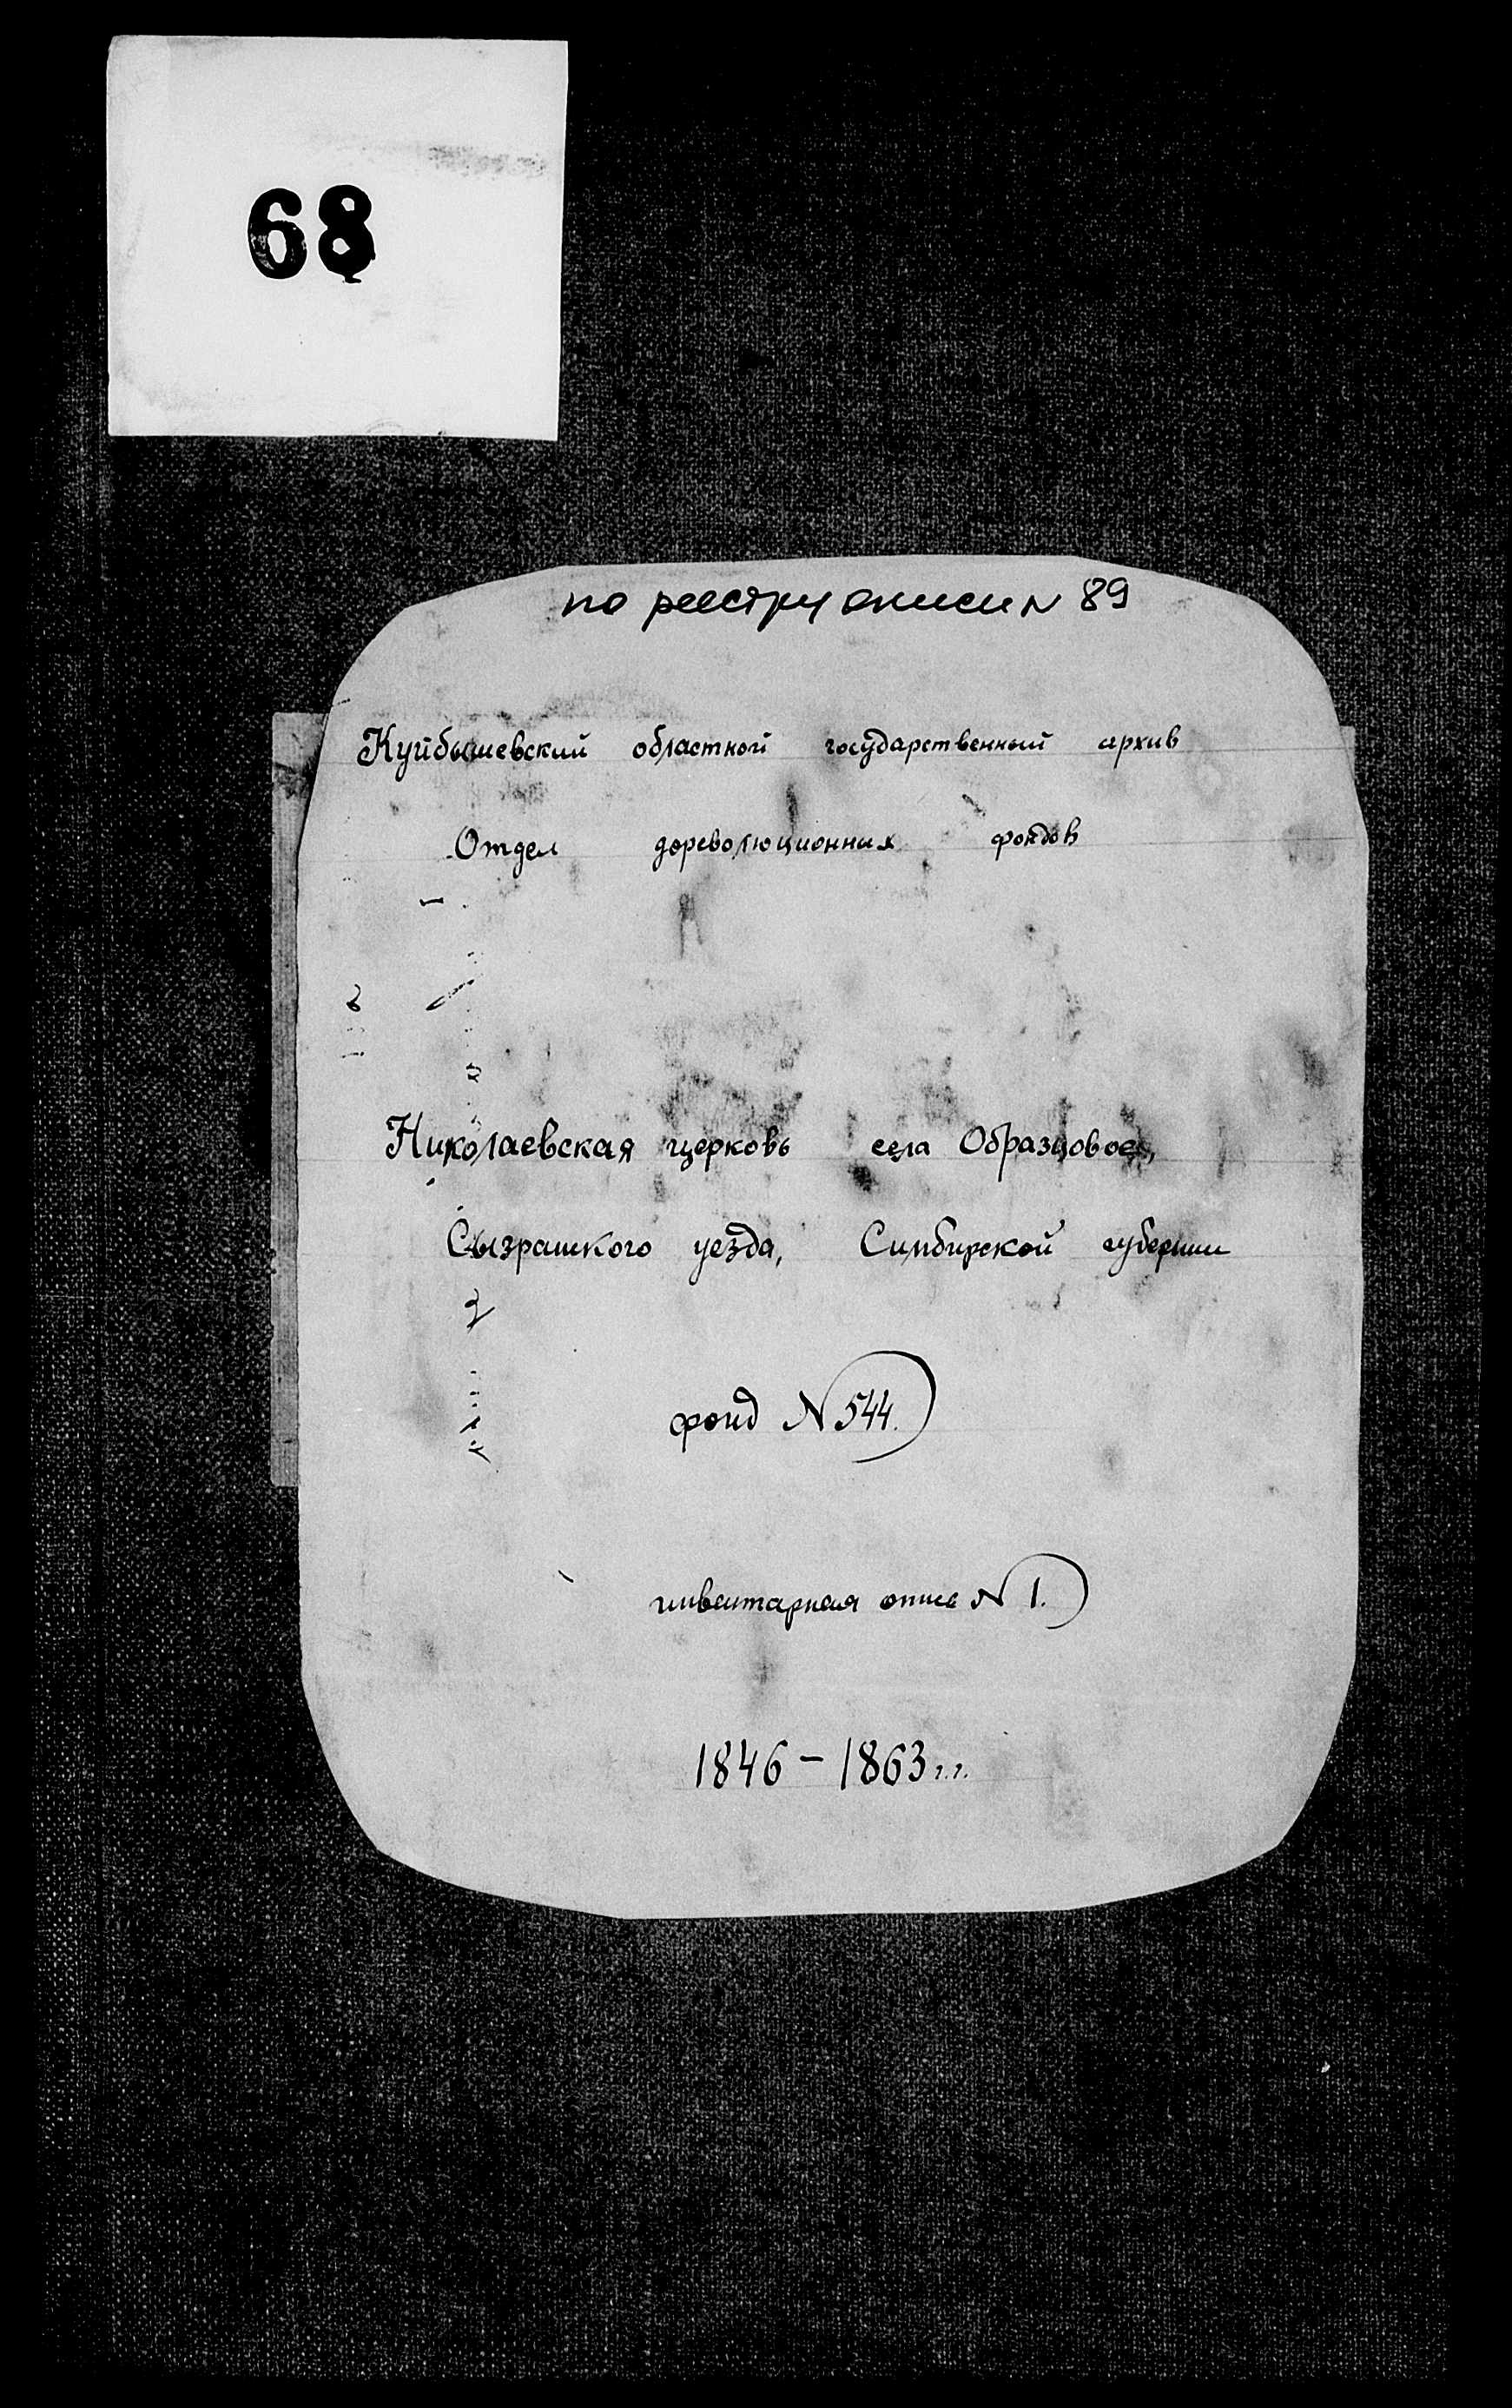 68
по реестру описи N 89
Куйбышевский областной государственный архив
Отдел дореволюционных фондов
Николаевская церковь села Образцовое,
Сызранского уезда, Симбирской губернии
фонд N 544.
инвентарная опись N 1.
1846 – 1863 г.г.